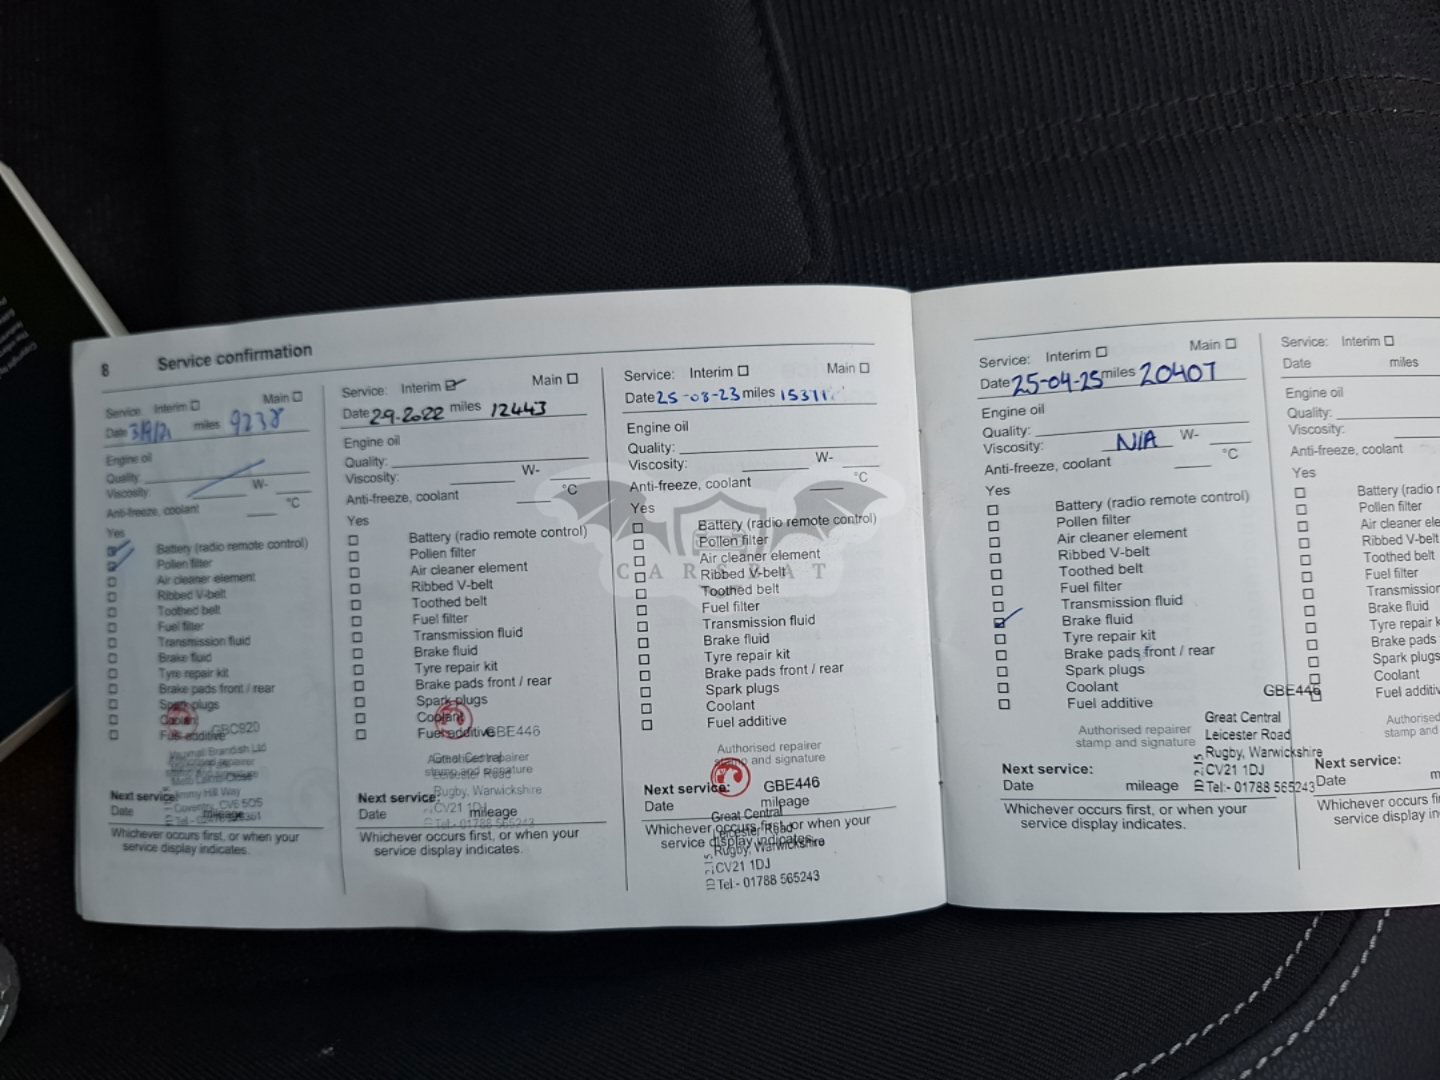 8 Service confirmation
Service: Interim Main
Date 3/9/21 miles 9238
Engine oil
Quality:
Viscosity: W-
Anti-freeze, coolant °C
Yes
Battery (radio remote control)
Pollen filter
Air cleaner element
Ribbed V-belt
Toothed belt
Fuel filter
Transmission fluid
Brake fluid
Tyre repair kit
Brake pads front / rear
Spark plugs
Coolant
Fuel additive
GBC920
Vauxhall Brandish Ltd
repairer
Jimmy Hill Way
Coventry, CV6 5QS
Next service:
Date mileage
Whichever occurs first, or when your
service display indicates.
Service: Interim Main
Date 29.2022 miles 12443
Engine oil
Quality:
Viscosity: W-
Anti-freeze, coolant °C
Yes
Battery (radio remote control)
Pollen filter
Air cleaner element
Ribbed V-belt
Toothed belt
Fuel filter
Transmission fluid
Brake fluid
Tyre repair kit
Brake pads front / rear
Spark plugs
Coolant
Fuel additive
GBE446
Authorised repairer
stamp and signature
Great Central
Leicester Road
Rugby, Warwickshire
CV21 1DJ
Tel:- 01788 565243
Next service:
Date mileage
Whichever occurs first, or when your
service display indicates.
Service: Interim Main
Date 25-08-23 miles 15371
Engine oil
Quality:
Viscosity: W-
Anti-freeze, coolant °C
Yes
Battery (radio remote control)
Pollen filter
Air cleaner element
Ribbed V-belt
Toothed belt
Fuel filter
Transmission fluid
Brake fluid
Tyre repair kit
Brake pads front / rear
Spark plugs
Coolant
Fuel additive
Authorised repairer
stamp and signature
Next service: GBE446
Date mileage
Whichever occurs first, or when your
service display indicates.
Great Central
Leicester Road
Rugby, Warwickshire
CV21 1DJ
Tel:- 01788 565243
CARSBAT
Service: Interim Main
Date 25-04-25 miles 20407
Engine oil
Quality:
Viscosity: N/A W-
Anti-freeze, coolant °C
Yes
Battery (radio remote control)
Pollen filter
Air cleaner element
Ribbed V-belt
Toothed belt
Fuel filter
Transmission fluid
Brake fluid
Tyre repair kit
Brake pads front / rear
Spark plugs
Coolant
Fuel additive
GBE446
Authorised repairer
stamp and signature
Great Central
Leicester Road
Rugby, Warwickshire
CV21 1DJ
Tel:- 01788 565243
Next service:
Date mileage
Whichever occurs first, or when your
service display indicates.
Service: Interim
Date miles
Engine oil
Quality:
Viscosity:
Anti-freeze, coolant
Yes
Battery (radio
Pollen filter
Air cleaner
Ribbed V-belt
Toothed belt
Fuel filter
Transmission
Brake fluid
Tyre repair
Brake pads
Spark plugs
Coolant
Fuel
Authorised
stamp and
Next service:
Date
Whichever occurs
service display